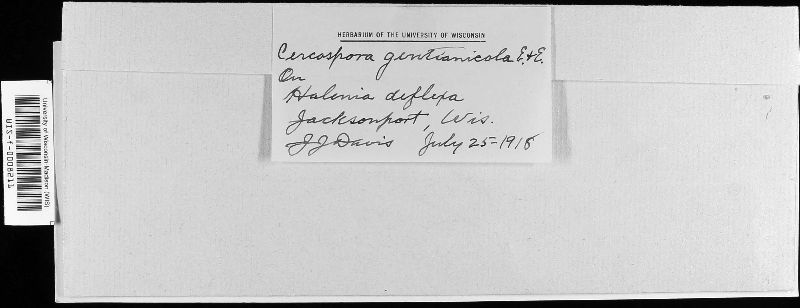 HERBARIUM OF THE UNIVERSITY OF WISCONSIN
Cercospora gentianicola E. & E.
On
Halenia deflexa
Jacksonport, Wis.
J J Davis July 25-1918
University of Wisconsin Madison (WIS)
WIS-f-0008211